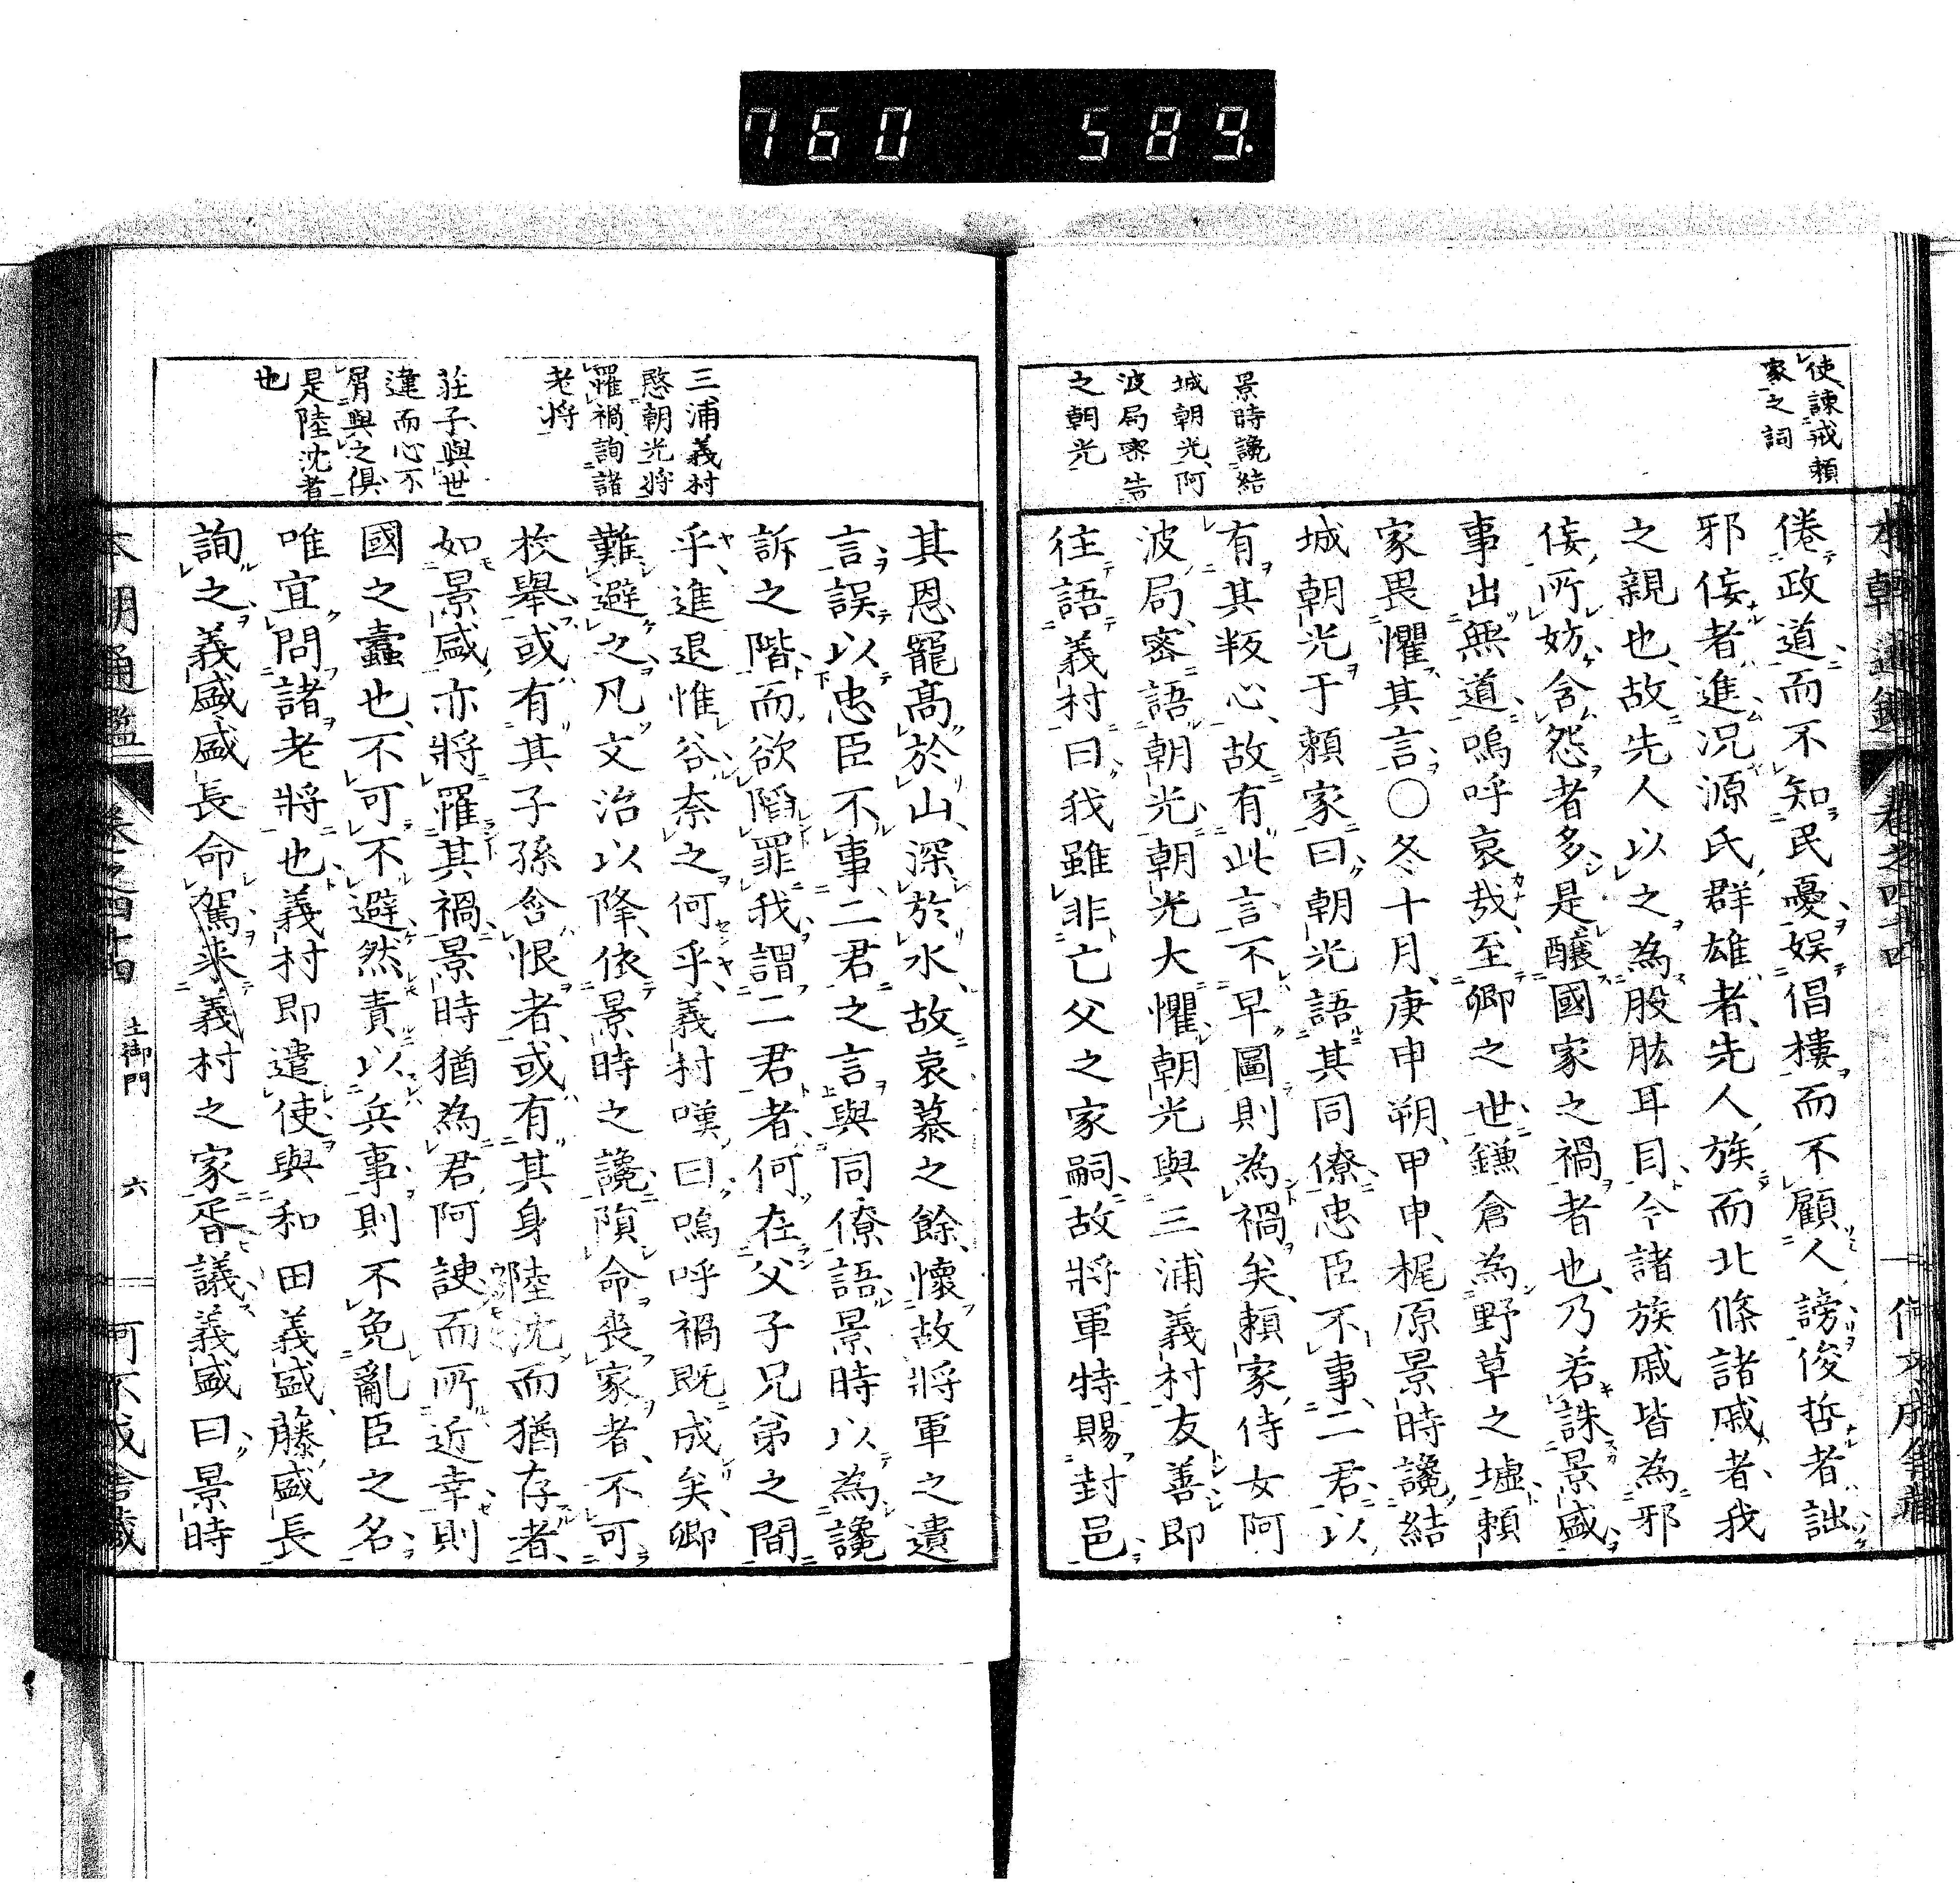 760 589.
使諫戒頼
家之詞
景時讒結
城朝光、阿
波局密告
之朝光
倦政道而不知民憂娯倡樓而不顧人謗俊哲者詘
邪佞者進況源氏群雄者先人族而北條諸戚者我
之親也、故先人以之為股肱耳目今諸族戚皆為邪
佞所妨含怨者多是釀國家之禍者也、乃若誅景盛
事出無道嗚呼哀哉、至卿之世鎌倉為野草之墟頼
家畏懼其言〇冬十月、庚申朔、甲申、梶原景時讒結
城朝光于頼家曰朝光語其同僚忠臣不事二君以
有其叛心、故有此言不早圖則為禍矣、頼家侍女阿
波局、密語朝光朝光大懼朝光與三浦義村友善即
往語義村曰我雖非亡父之家嗣故將軍特賜封邑
三浦義村
愍朝光將
罹禍、詢諸
老將
莊子、與世
違而心不
屑與之俱、
是陸沈者
也
其恩寵高於山、深於水、故哀慕之餘、懐故將軍之遺
言誤以忠臣不事二君之言與同僚語景時以為讒
訴之階、而欲陷罪我謂二君者何在父子兄弟之間
乎、進退惟谷奈之何乎、義村嘆曰嗚呼禍既成矣、卿
難避之凡文治以降、依景時之讒隕命喪家者、不可
枚舉、或有其子孫含恨者、或有其身陸沈而猶存者、
如景盛亦將罹其禍、景時猶為君阿諛而所近幸則
國之蠹也、不可不避然責以兵事則不免亂臣之名、
唯宜問諸老將也、義村即遣使與和田義盛、藤盛長
詢之、義盛盛長命駕来義村之家胥議義盛曰景時
本朝通鑑 卷之四十四 土御門 六